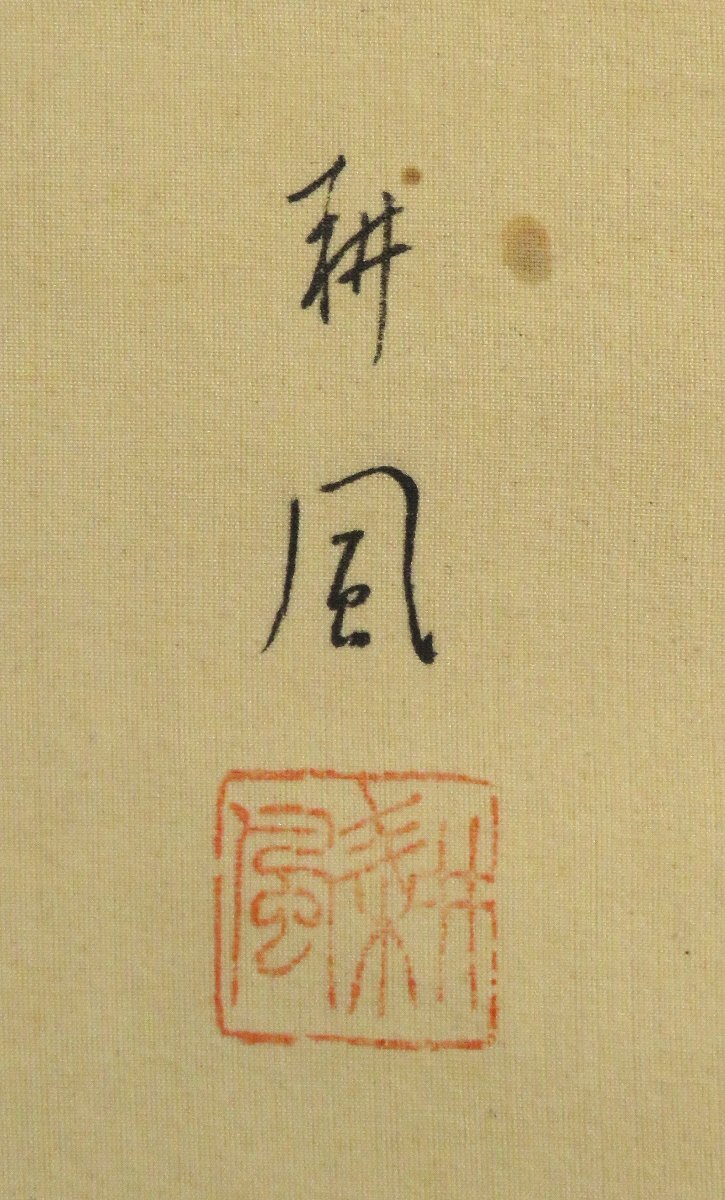 耕
風
耕風